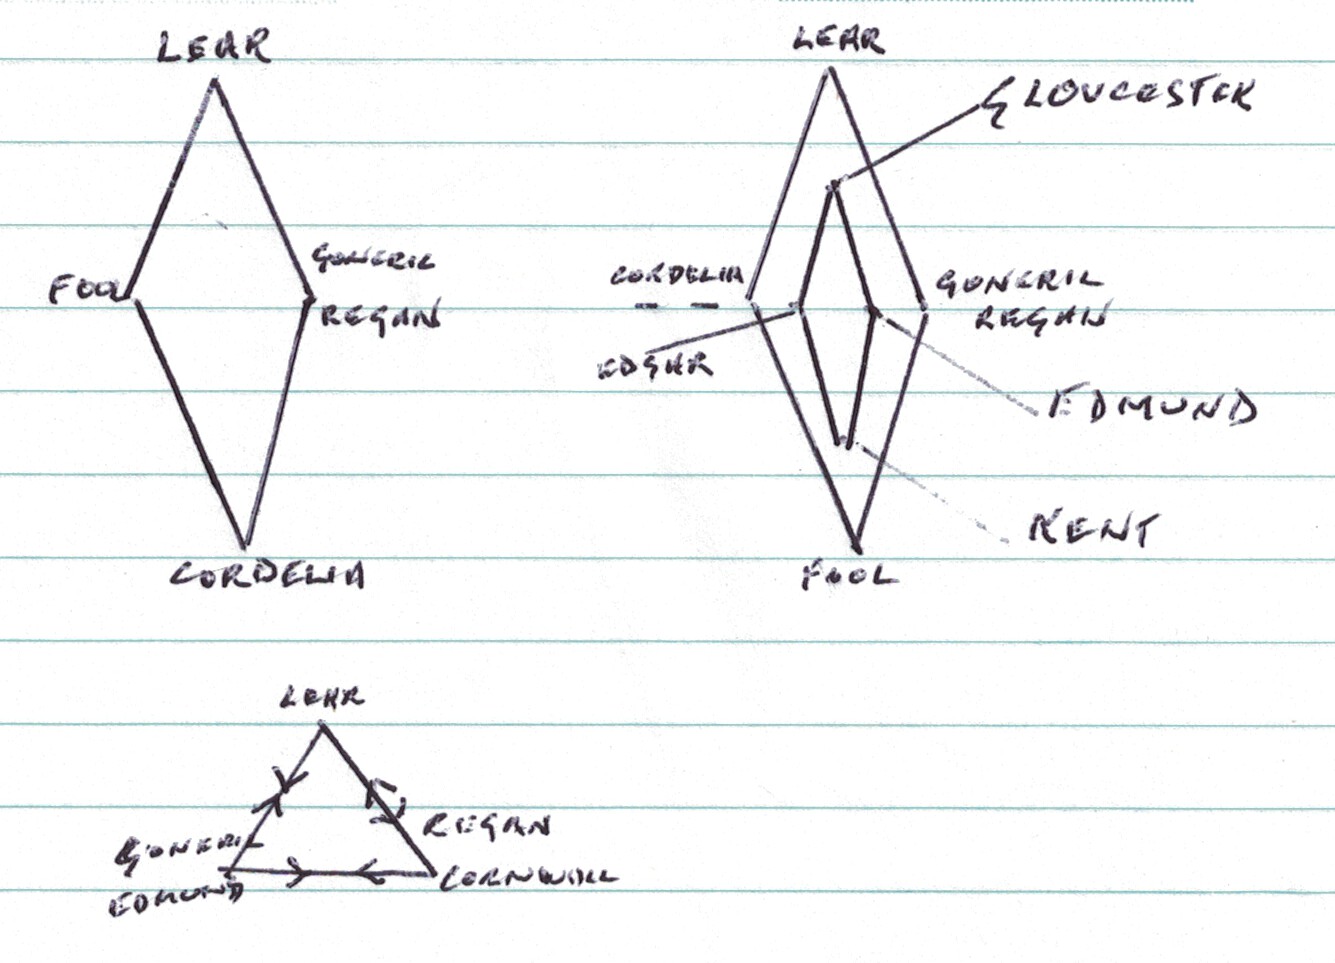 LEAR
FOOL
GONERIL
REGAN
CORDELIA
LEAR
GLOUCESTER
CORDELIA
GONERIL
REGAN
EDGAR
EDMUND
KENT
FOOL
LEAR
REGAN
GONERIL
EDMUND
CORNWALL